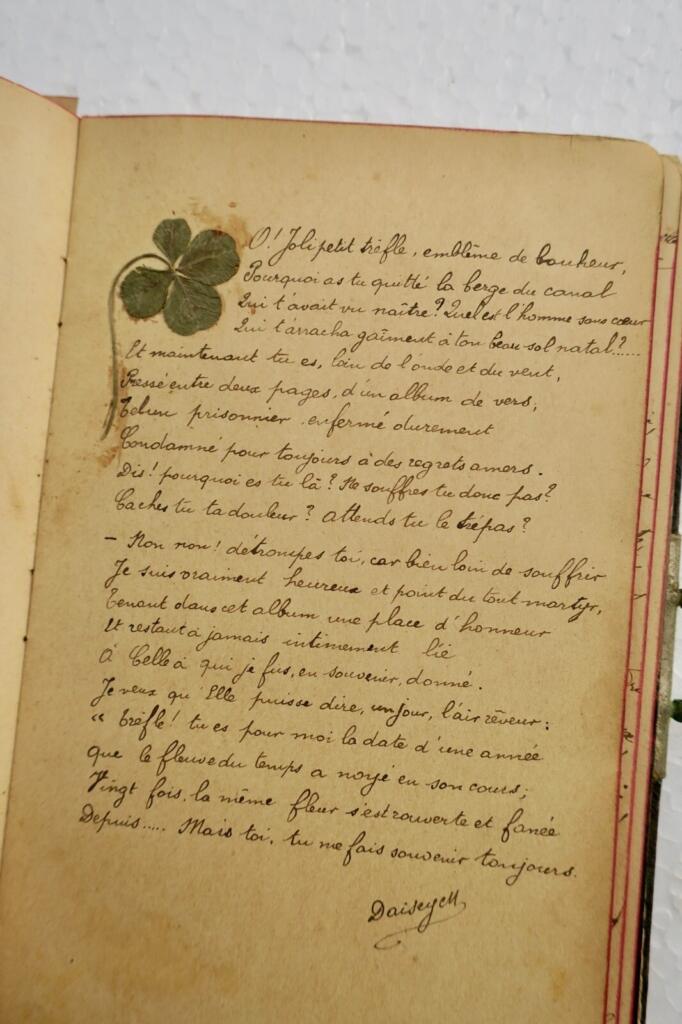 O! Joli petit trèfle, emblême de bonheur,
Pourquoi as tu quitté la berge du canal
Qui t'avait vu naître? Quel est l'homme sans cœur
Qui t'arracha gaîment à ton beau sol natal?.....
Et maintenant tu es, loin de l'onde et du vent,
Pressé entre deux pages, d'un album de vers,
prisonnier, enfermé durement
Condamné pour toujours à des regrets amers.
Dis! pourquoi es tu là? Ne souffres tu donc pas?
Caches tu ta douleur? attends tu le trépas?
- Non non! détrompes toi, car bien loin de souffrir
Je suis vraiment heureux et point du tout martyr,
Tenant dans cet album une place d'honneur
Et restant à jamais intimement lié
À Celle à qui je fus, en souvenir, donné.
Je veux qu'Elle puisse dire, un jour, l'air rêveur:
"Trèfle! tu es pour moi la date d'une année
que le fleuve du temps a noyé en son cours;
Vingt fois, la même fleur s'est rouverte et fanée
Depuis..... Mais toi, tu me fais souvenir toujours.